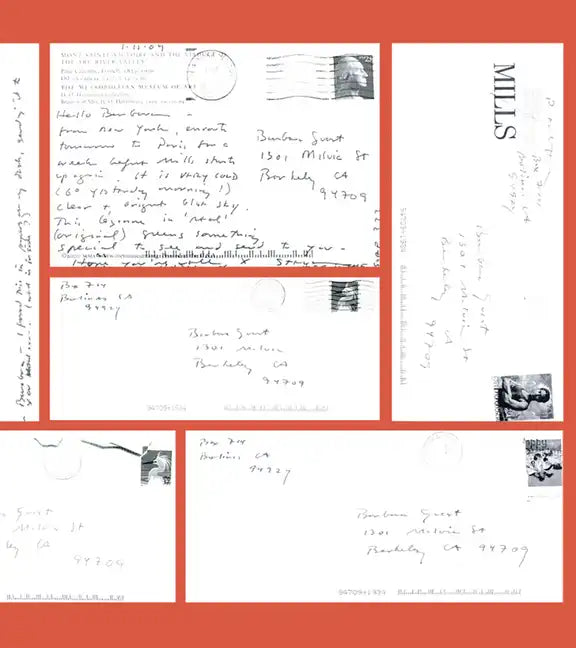 1-11-04
MONT SAINTE-VICTOIRE AND THE VIADUCT OF
THE ARC RIVER VALLEY
Paul Cézanne, French, 1839-1906
THE METROPOLITAN MUSEUM OF ART
Hello Barbara –
from New York, enroute
tomorrow to Paris for a
week before Mills starts
up again. It is very cold
(60 yesterday morning!)
clear & bright blue sky.
This Cézanne in 'real'
(original) greens something
special to see and send to you –
Hope you're well, X
Barbara Guest
1301 Milvia St
Berkeley CA
94709
MILLS
Box 714
Bolinas CA
94927
Barbara Guest
1301 Milvia St
Berkeley CA
94709
94709+1304
Barbara – I found this in papers on my desk,
Box 714
Bolinas CA
94927
Barbara Guest
1301 Milvia
Berkeley CA
94709
94709+1304
Guest
Milvia St
ley CA
94709
Box 714
Bolinas CA
94927
Barbara Guest
1301 Milvia St
Berkeley CA 94709
94709+1304